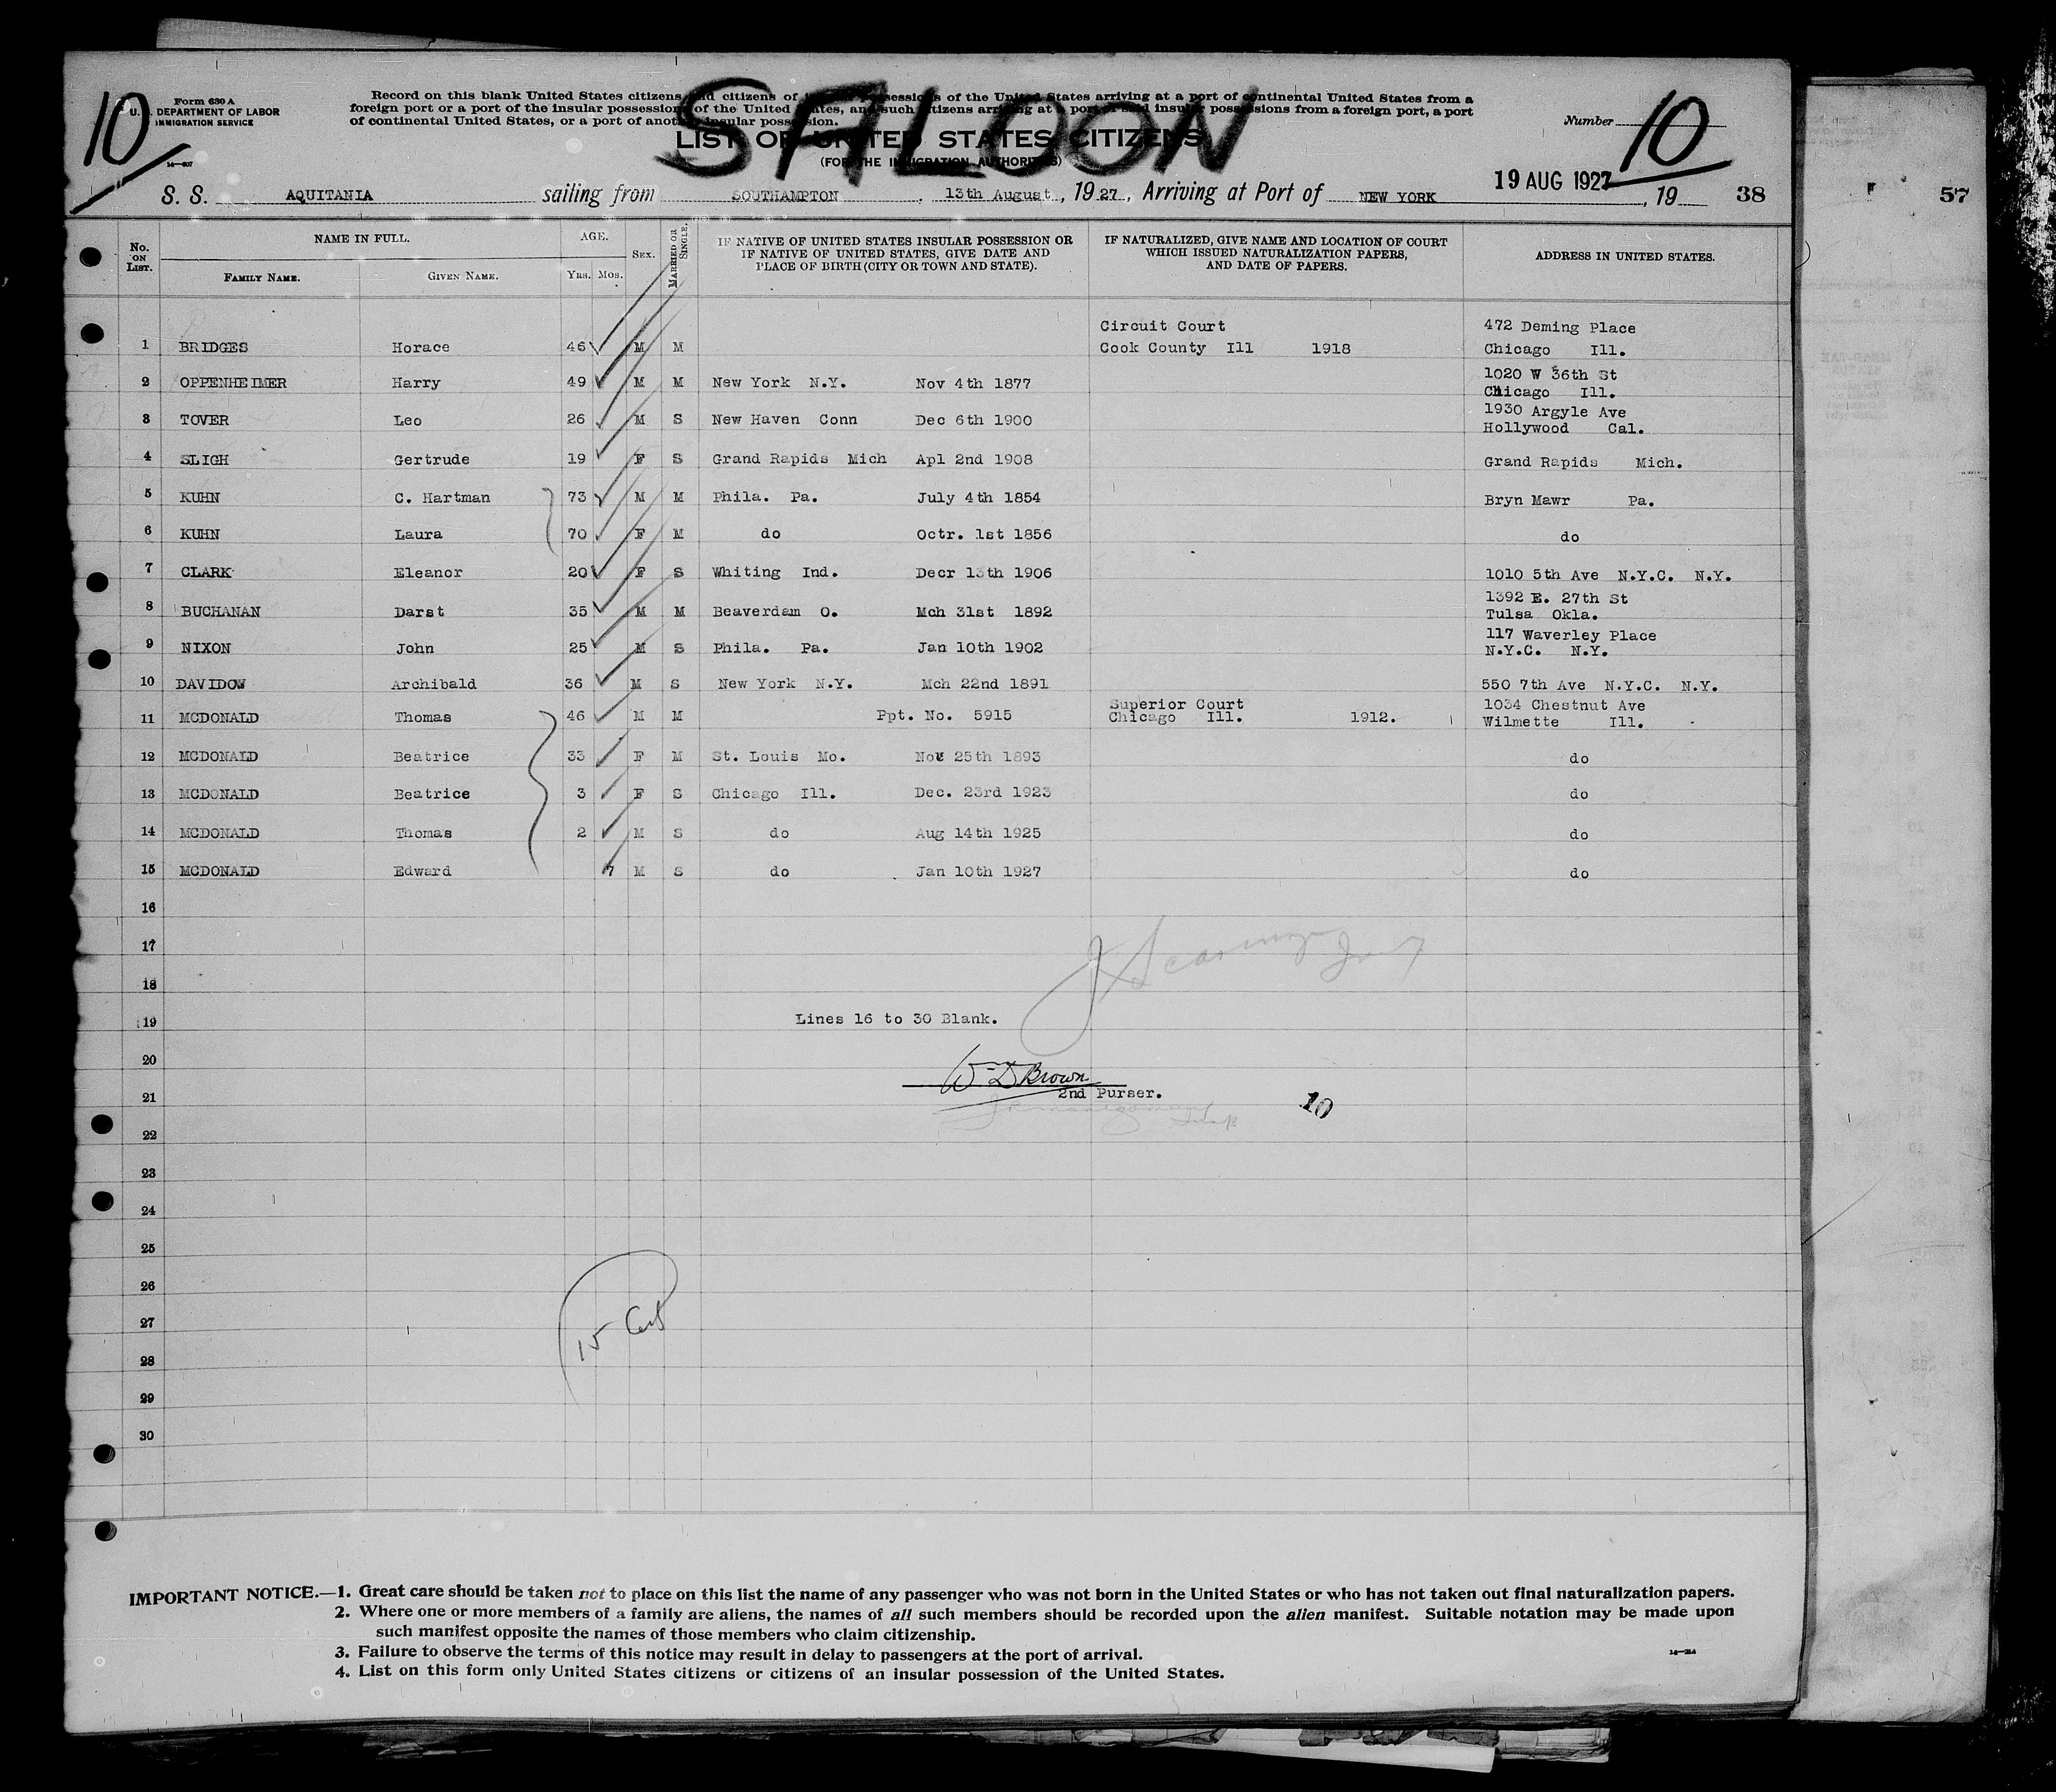 SALOON
10
Form 630 A
U.S. DEPARTMENT OF LABOR
IMMIGRATION SERVICE
14—607
Record on this blank United States citizens and citizens of possessions of the United States arriving at a port of continental United States from a
foreign port or a port of the insular possessions of the United States, and such citizens arriving at a port of said insular possessions from a foreign port, a port
of continental United States, or a port of another insular possession.
LIST OF UNITED STATES CITIZENS
(FOR THE IMMIGRATION AUTHORITIES)
Number 10
S. S. AQUITANIA sailing from SOUTHAMPTON, 13th August, 1927, Arriving at Port of NEW YORK 19 AUG 1927, 19 38
57
No. ON LIST. NAME IN FULL. AGE. SEX. MARRIED OR SINGLE. IF NATIVE OF UNITED STATES INSULAR POSSESSION OR IF NATIVE OF UNITED STATES, GIVE DATE AND PLACE OF BIRTH (CITY OR TOWN AND STATE). IF NATURALIZED, GIVE NAME AND LOCATION OF COURT WHICH ISSUED NATURALIZATION PAPERS, AND DATE OF PAPERS. ADDRESS IN UNITED STATES.
FAMILY NAME. GIVEN NAME. YRS. MOS.
Circuit Court 472 Deming Place
1 BRIDGES Horace 46 M M Cook County Ill 1918 Chicago Ill.
1020 W 36th St
2 OPPENHEIMER Harry 49 M M New York N.Y. Nov 4th 1877 Chicago Ill.
1930 Argyle Ave
3 TOVER Leo 26 M S New Haven Conn Dec 6th 1900 Hollywood Cal.
4 SLIGH Gertrude 19 F S Grand Rapids Mich Apl 2nd 1908 Grand Rapids Mich.
5 KUHN C. Hartman 73 M M Phila. Pa. July 4th 1854 Bryn Mawr Pa.
6 KUHN Laura 70 F M do Octr. 1st 1856 do
7 CLARK Eleanor 20 F S Whiting Ind. Decr 13th 1906 1010 5th Ave N.Y.C. N.Y.
1392 E. 27th St
8 BUCHANAN Darst 35 M M Beaverdam O. Mch 31st 1892 Tulsa Okla.
117 Waverley Place
9 NIXON John 25 M S Phila. Pa. Jan 10th 1902 N.Y.C. N.Y.
10 DAVIDOW Archibald 36 M S New York N.Y. Mch 22nd 1891 550 7th Ave N.Y.C. N.Y.
Superior Court 1034 Chestnut Ave
11 MCDONALD Thomas 46 M M Ppt. No. 5915 Chicago Ill. 1912. Wilmette Ill.
12 MCDONALD Beatrice 33 F M St. Louis Mo. Nov 25th 1893 do
13 MCDONALD Beatrice 3 F S Chicago Ill. Dec. 23rd 1923 do
14 MCDONALD Thomas 2 M S do Aug 14th 1925 do
15 MCDONALD Edward 7 M S do Jan 10th 1927 do
16
17
18
19 Lines 16 to 30 Blank.
20 W D Brown
21 2nd Purser. 10
22
23
24
25
26
27 15
28
29
30
IMPORTANT NOTICE.—1. Great care should be taken not to place on this list the name of any passenger who was not born in the United States or who has not taken out final naturalization papers.
2. Where one or more members of a family are aliens, the names of all such members should be recorded upon the alien manifest. Suitable notation may be made upon
such manifest opposite the names of those members who claim citizenship.
3. Failure to observe the terms of this notice may result in delay to passengers at the port of arrival.
4. List on this form only United States citizens or citizens of an insular possession of the United States.